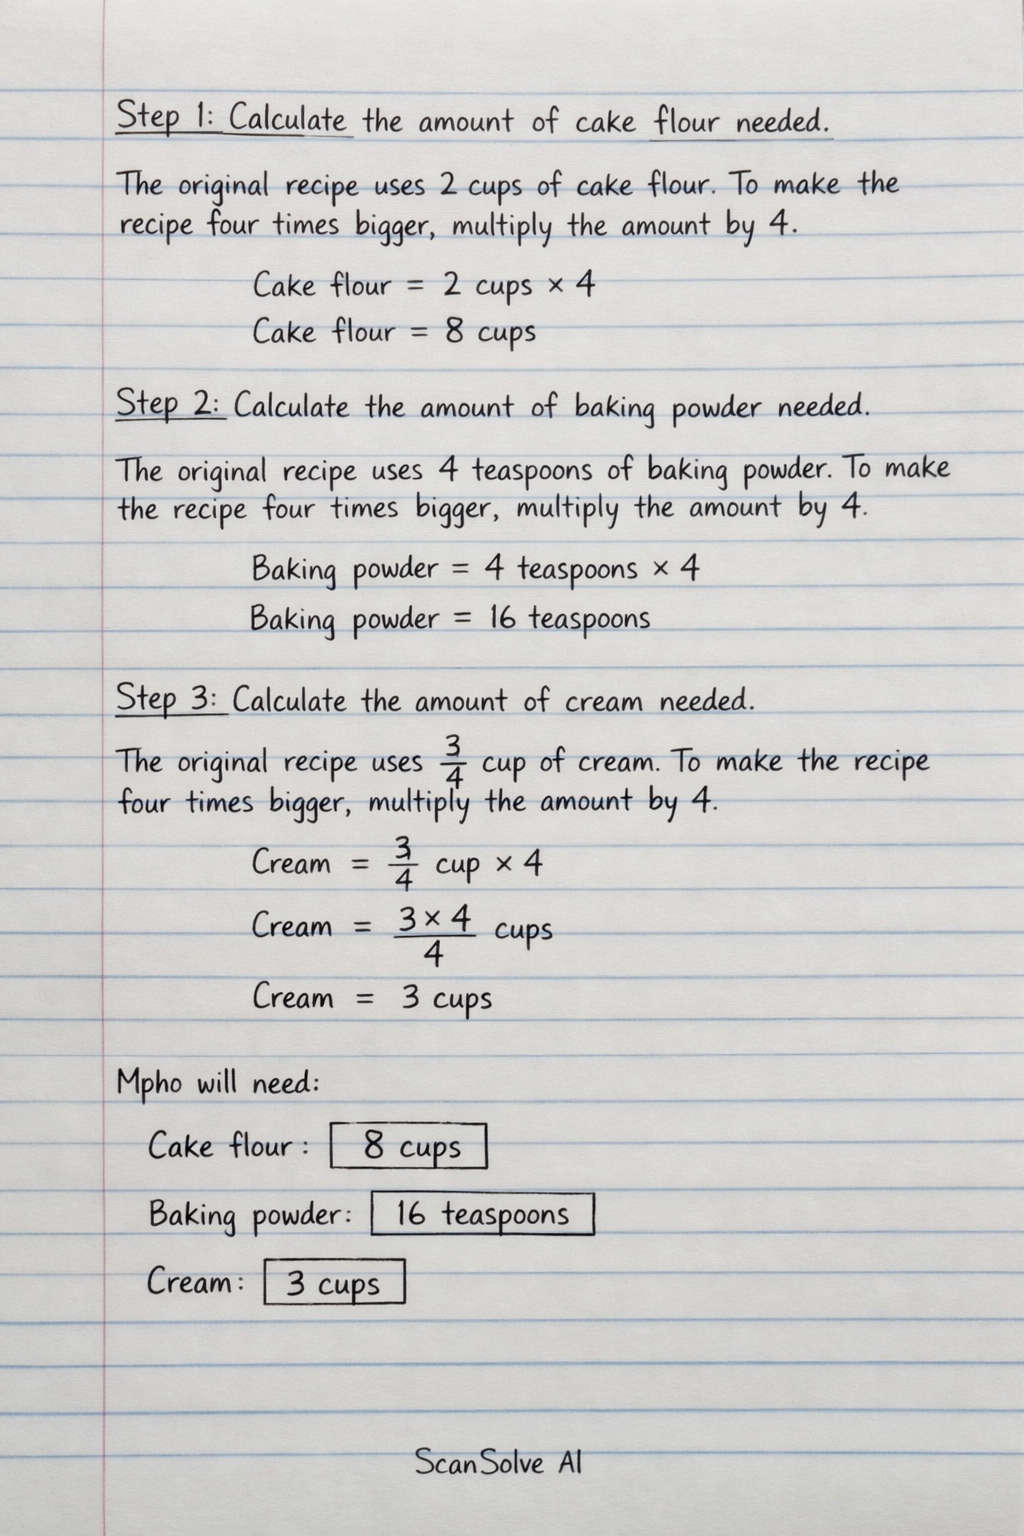 Step 1: Calculate the amount of cake flour needed.
The original recipe uses 2 cups of cake flour. To make the
recipe four times bigger, multiply the amount by 4.
Cake flour = 2 cups × 4
Cake flour = 8 cups
Step 2: Calculate the amount of baking powder needed.
The original recipe uses 4 teaspoons of baking powder. To make
the recipe four times bigger, multiply the amount by 4.
Baking powder = 4 teaspoons × 4
Baking powder = 16 teaspoons
Step 3: Calculate the amount of cream needed.
The original recipe uses 3/4 cup of cream. To make the recipe
four times bigger, multiply the amount by 4.
Cream = 3/4 cup × 4
Cream = 3 × 4 / 4 cups
Cream = 3 cups
Mpho will need:
Cake flour: 8 cups
Baking powder: 16 teaspoons
Cream: 3 cups
ScanSolve AI